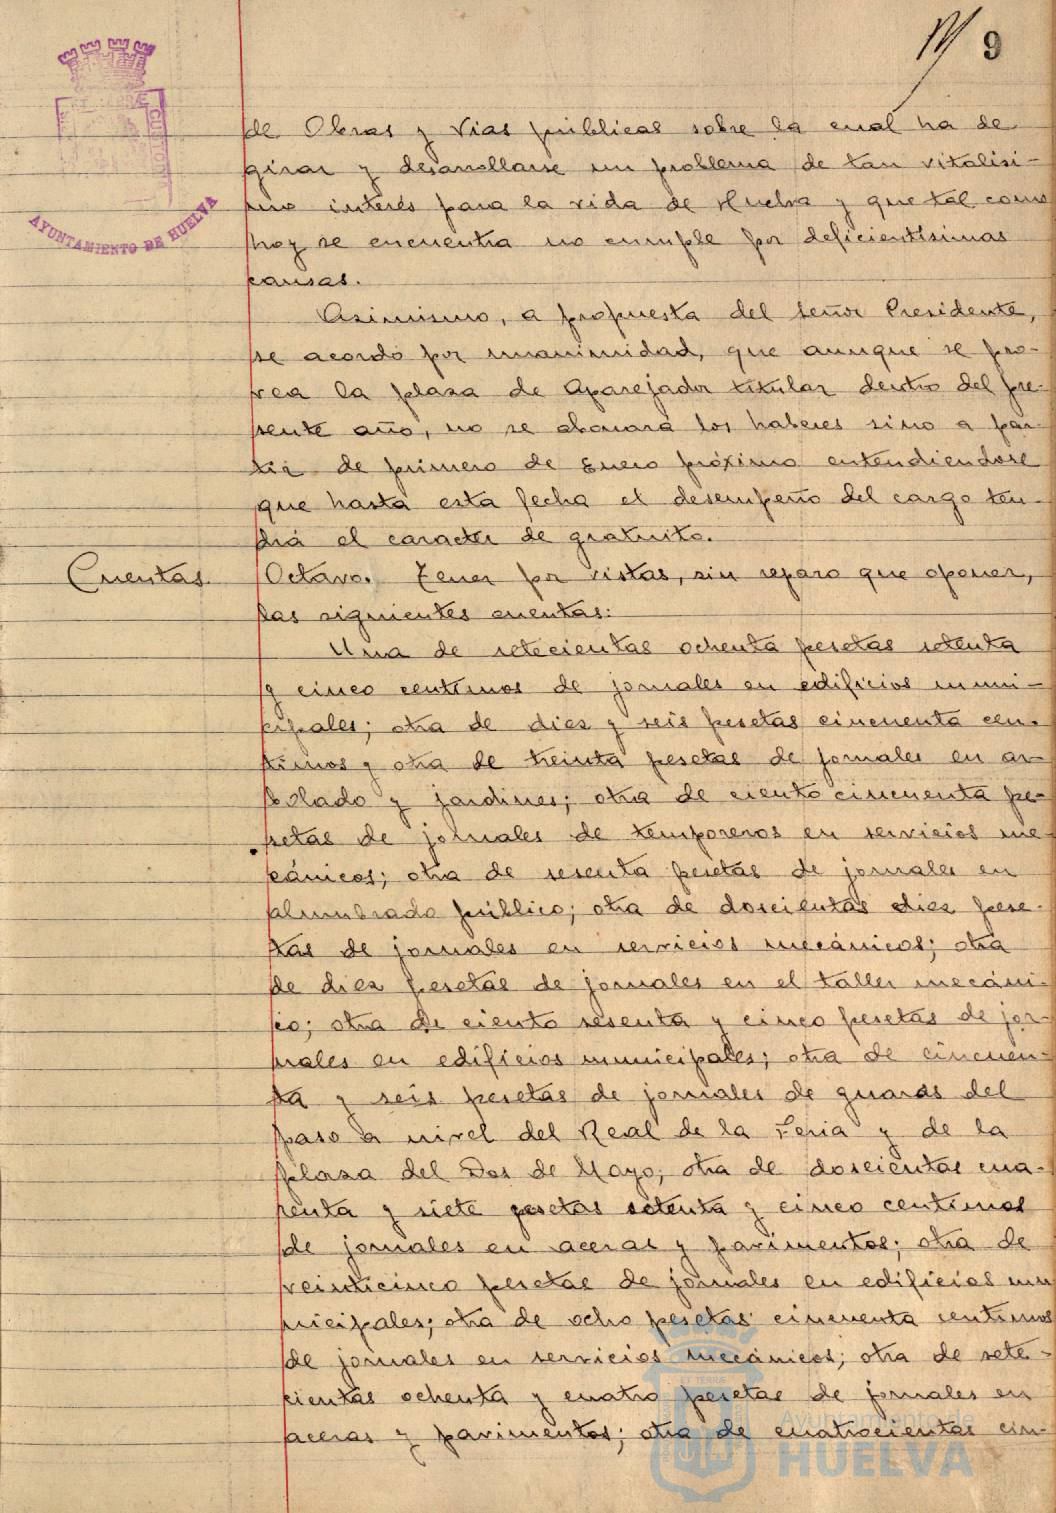 9
AYUNTAMIENTO DE HUELVA
de Obras y Vias públicas sobre la cual ha de
girar y desarrollarse un problema de tan vitalisi-
mo interés para la vida de Huelva y que tal como
hoy se encuentra no cumple por deficientísimas
causas.
Asimismo, a propuesta del señor Presidente,
se acordó por unanimidad, que aunque se pro-
vea la plaza de Aparejador titular dentro del pre-
sente año, no se abonará los haberes sino a par-
tir de primero de Enero próximo entendiendose
que hasta esta fecha el desempeño del cargo ten-
drá el caracter de gratuito.
Cuentas. Octavo. Tener por vistas, sin reparo que oponer,
las siguientes cuentas:
Una de setecientas ochenta pesetas setenta
y cinco centimos de jornales en edificios muni-
cipales; otra de diez y seis pesetas cincuenta cen-
timos y otra de treinta pesetas de jornales en ar-
bolado y jardines; otra de ciento cincuenta pe-
setas de jornales de temporeros en servicios me-
cánicos; otra de sesenta pesetas de jornales en
alumbrado público; otra de doscientas diez pese-
tas de jornales en servicios mecánicos; otra
de diez pesetas de jornales en el taller mecáni-
co; otra de ciento sesenta y cinco pesetas de jor-
nales en edificios municipales; otra de cincuen-
ta y seis pesetas de jornales de guardas del
paso a nivel del Real de la Feria y de la
plaza del Dos de Mayo; otra de doscientas cua-
renta y siete pesetas setenta y cinco centimos
de jornales en aceras y pavimentos; otra de
veinticinco pesetas de jornales en edificios mu
nicipales; otra de ocho pesetas cincuenta centimos
de jornales en servicios mecánicos; otra de sete-
cientas ochenta y cuatro pesetas de jornales en
aceras y pavimentos; otra de cuatrocientas cin-
Ayuntamiento de
HUELVA